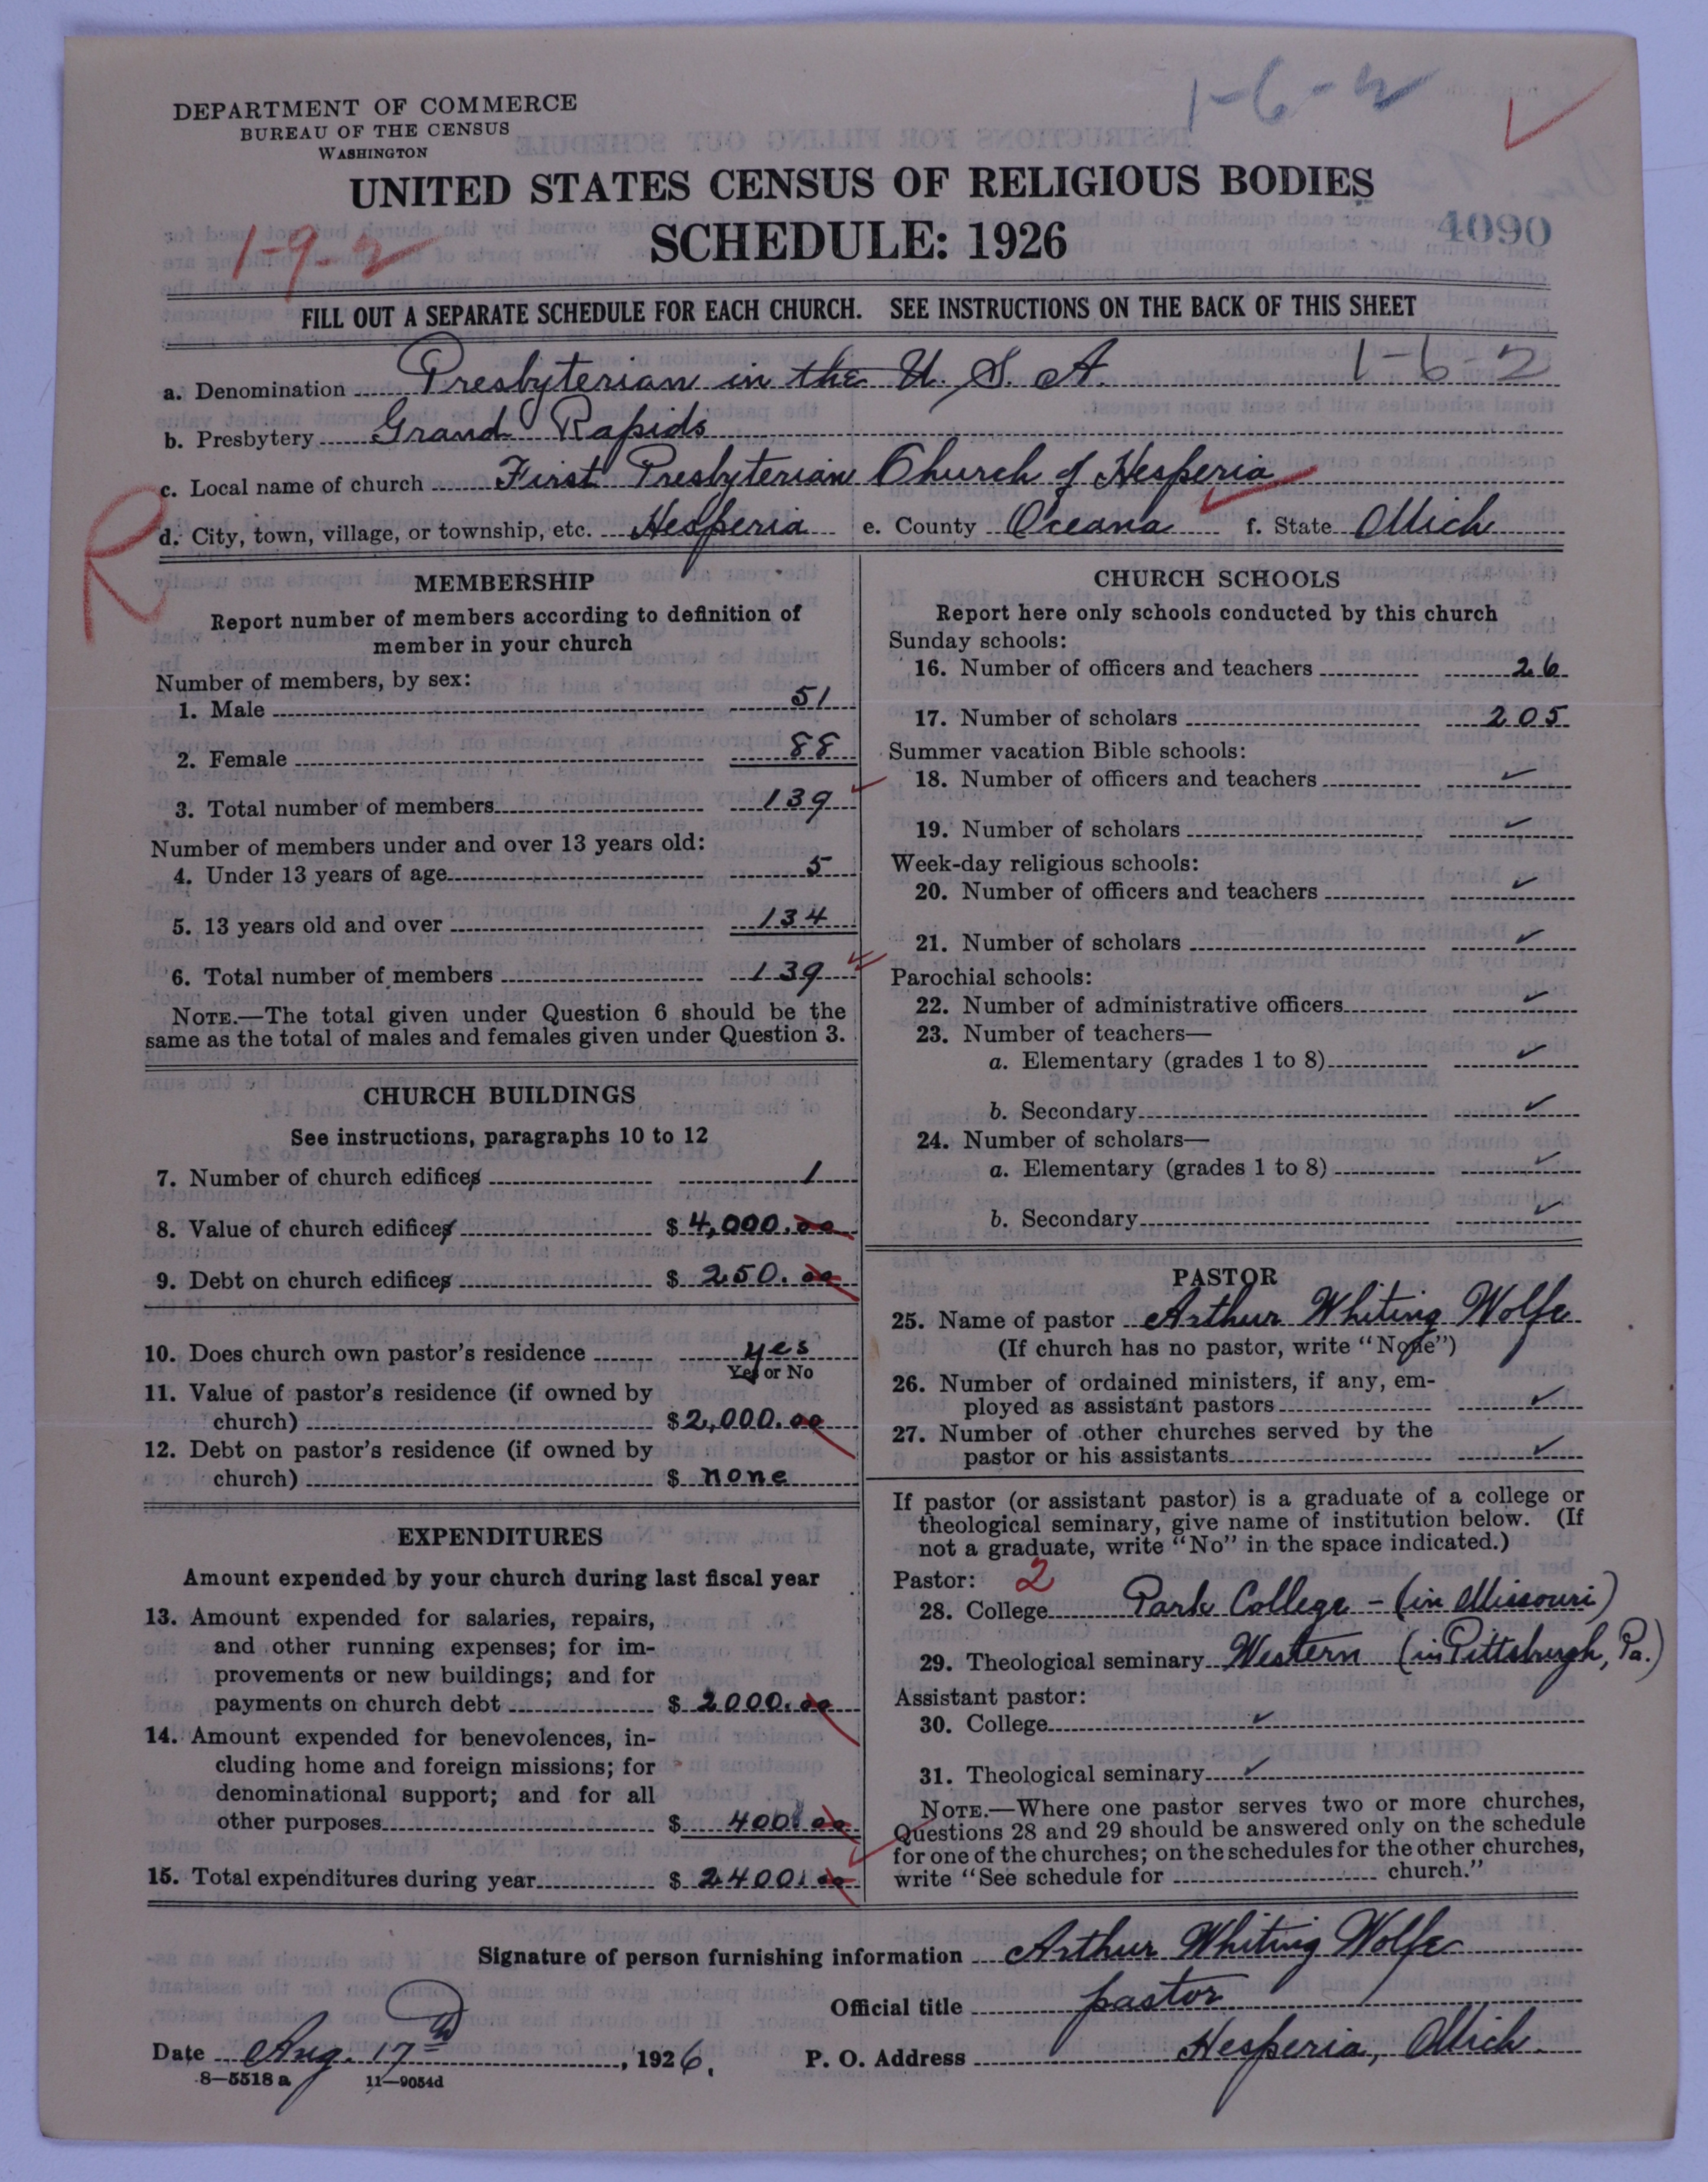 1-6-2
DEPARTMENT OF COMMERCE
BUREAU OF THE CENSUS
WASHINGTON
UNITED STATES CENSUS OF RELIGIOUS BODIES
SCHEDULE: 1926
4090
1-9-2
FILL OUT A SEPARATE SCHEDULE FOR EACH CHURCH. SEE INSTRUCTIONS ON THE BACK OF THIS SHEET
a. Denomination Presbyterian in the U. S. A. 1-6-2
b. Presbytery Grand Rapids
c. Local name of church First Presbyterian Church of Hesperia
R
d. City, town, village, or township, etc. Hesperia e. County Oceana f. State Mich
MEMBERSHIP
Report number of members according to definition of
member in your church
Number of members, by sex:
1. Male 51
2. Female 88
3. Total number of members 139
Number of members under and over 13 years old:
4. Under 13 years of age 5
5. 13 years old and over 134
6. Total number of members 139
NOTE.—The total given under Question 6 should be the
same as the total of males and females given under Question 3.
CHURCH BUILDINGS
See instructions, paragraphs 10 to 12
7. Number of church edifices 1
8. Value of church edifices $ 4,000.00
9. Debt on church edifices $ 250.00
10. Does church own pastor's residence yes
Yes or No
11. Value of pastor's residence (if owned by
church) $ 2,000.00
12. Debt on pastor's residence (if owned by
church) $ none
EXPENDITURES
Amount expended by your church during last fiscal year
13. Amount expended for salaries, repairs,
and other running expenses; for im-
provements or new buildings; and for
payments on church debt $ 2000.00
14. Amount expended for benevolences, in-
cluding home and foreign missions; for
denominational support; and for all
other purposes $ 400.00
15. Total expenditures during year $ 2400.00
CHURCH SCHOOLS
Report here only schools conducted by this church
Sunday schools:
16. Number of officers and teachers 26
17. Number of scholars 205
Summer vacation Bible schools:
18. Number of officers and teachers ✓
19. Number of scholars ✓
Week-day religious schools:
20. Number of officers and teachers ✓
21. Number of scholars ✓
Parochial schools:
22. Number of administrative officers ✓
23. Number of teachers—
a. Elementary (grades 1 to 8) ✓
b. Secondary ✓
24. Number of scholars—
a. Elementary (grades 1 to 8) ✓
b. Secondary ✓
PASTOR
25. Name of pastor Arthur Whiting Wolfe
(If church has no pastor, write "None")
26. Number of ordained ministers, if any, em-
ployed as assistant pastors ✓
27. Number of other churches served by the
pastor or his assistants ✓
If pastor (or assistant pastor) is a graduate of a college or
theological seminary, give name of institution below. (If
not a graduate, write "No" in the space indicated.)
Pastor: 2
28. College Park College - (in Missouri)
29. Theological seminary Western (in Pittsburgh, Pa.)
Assistant pastor:
30. College ✓
31. Theological seminary ✓
NOTE.—Where one pastor serves two or more churches,
Questions 28 and 29 should be answered only on the schedule
for one of the churches; on the schedules for the other churches,
write "See schedule for church."
Signature of person furnishing information Arthur Whiting Wolfe
Official title pastor
Date Aug. 17th, 1926. P. O. Address Hesperia, Mich.
8—5518 a 11—9054d